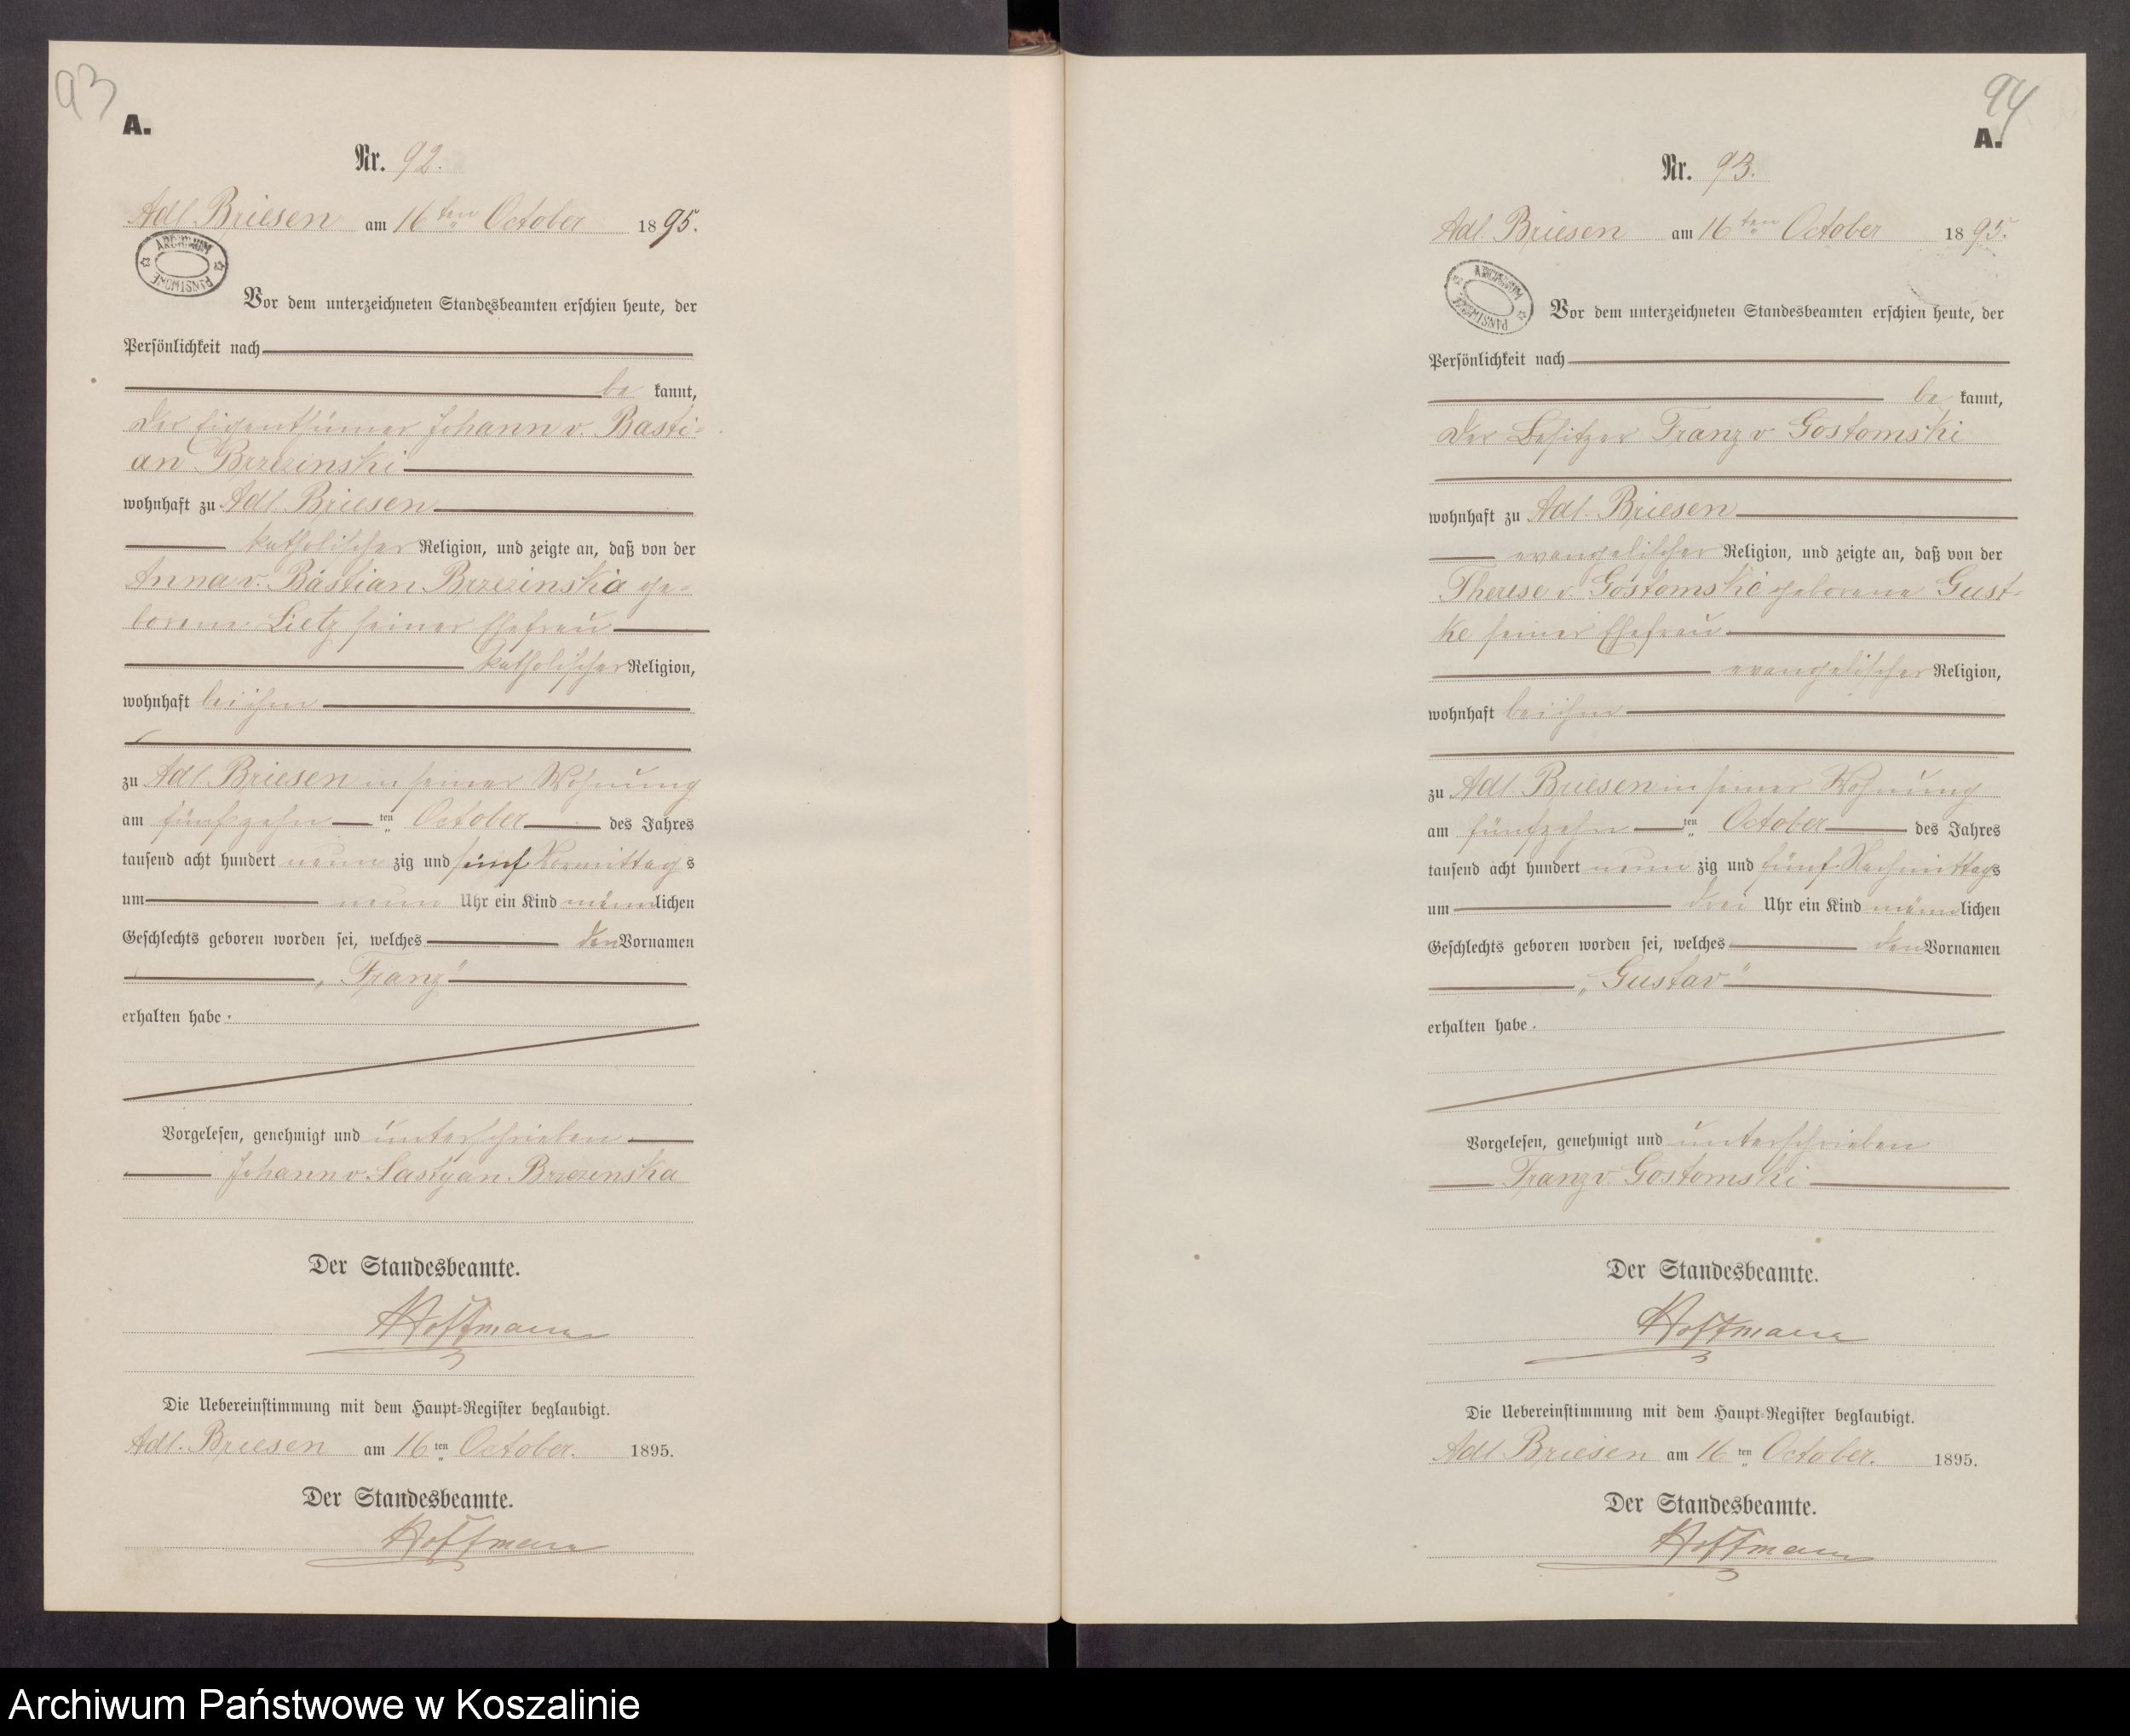 93
A.
Nr. 92.
Adl. Briesen am 16ten October 1895.
ARCHIWUM PAŃSTWOWE
Vor dem unterzeichneten Standesbeamten erschien heute, der
Persönlichkeit nach
be kannt,
der Eigenthümer Johann v. Basti-
an Brzezinski
wohnhaft zu Adl. Briesen
katholischer Religion, und zeigte an, daß von der
Anna v. Bastian Brzezinska ge-
borene Lietz seiner Ehefrau
katholischer Religion,
wohnhaft bei ihm
zu Adl. Briesen in seiner Wohnung
am fünfzehn ten October des Jahres
tausend acht hundert neun zig und fünf Vormittags
um neun Uhr ein Kind männlichen
Geschlechts geboren worden sei, welches den Vornamen
„Franz"
erhalten habe.
Vorgelesen, genehmigt und unterschrieben
Johann v.
Der Standesbeamte.
Hoffmann
Die Uebereinstimmung mit dem Haupt-Register beglaubigt.
Adl. Briesen am 16ten October. 1895.
Der Standesbeamte.
Hoffmann
94
A.
Nr. 93.
Adl. Briesen am 16ten October 1895.
ARCHIWUM PAŃSTWOWE
Vor dem unterzeichneten Standesbeamten erschien heute, der
Persönlichkeit nach
be kannt,
der Besitzer Franz v Gostomski
wohnhaft zu Adl. Briesen
evangelischer Religion, und zeigte an, daß von der
Therese v. Gostomski geborene Gust-
ke seiner Ehefrau
evangelischer Religion,
wohnhaft bei ihm
zu Adl. Briesen in seiner Wohnung
am fünfzehn ten October des Jahres
tausend acht hundert neun zig und fünf Nachmittags
um drei Uhr ein Kind männlichen
Geschlechts geboren worden sei, welches den Vornamen
„Gustav"
erhalten habe.
Vorgelesen, genehmigt und unterschrieben
Franz v Gostomski
Der Standesbeamte.
Hoffmann
Die Uebereinstimmung mit dem Haupt-Register beglaubigt.
Adl. Briesen am 16ten October. 1895.
Der Standesbeamte.
Hoffmann
Archiwum Państwowe w Koszalinie